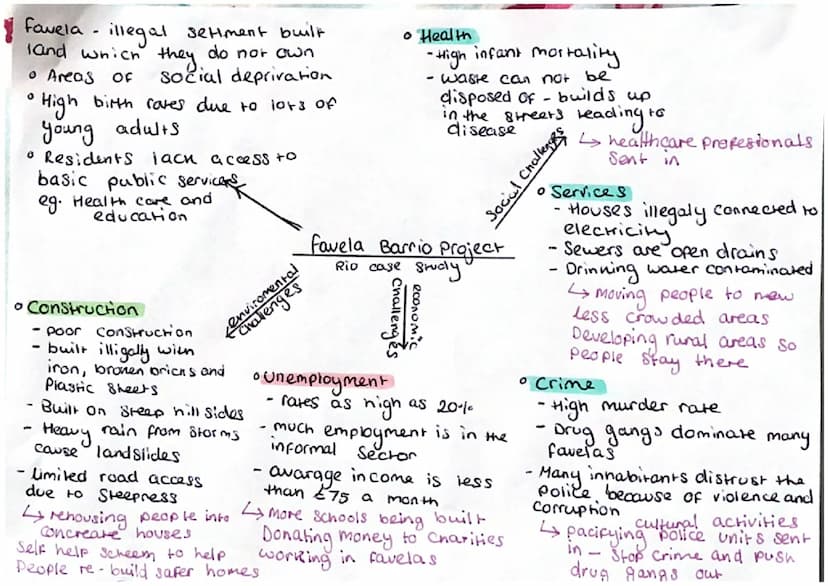 Favela - illegal setlment built
land which they do not own
• Areas of social deprivation
• High birth rates due to lots of
young adults
• Residents lack access to
basic public services
eg. Health care and
education
• Health
- High infant mortality
- waste can not be
disposed of - builds up
in the streets leading to
disease
↳ healthcare profesionals
sent in
Social Challenges
• Services
- Houses illegaly connected to
electricity
- Sewers are open drains
- Drinking water contaminated
↳ Moving people to new
less crowded areas
Developing rural areas so
people stay there
Favela Barrio Project
Rio case study
enviromental
challenges
economic
challenges
• Construction
- poor construction
- built illigally with
iron, broken bricks and
Plastic sheets
- Built on steep hill sides
- Heavy rain from storms
cause landslides
- Limited road access
due to steepness
↳ rehousing people into
concreate houses
Self help scheem to help
People re-build safer homes
• Unemployment
- rates as high as 20%
- much employment is in the
informal sector
- avarage income is less
than £75 a month
↳ More schools being built
Donating money to charities
working in favelas
• Crime
- High murder rate
- Drug gangs dominate many
favelas
- Many inhabitants distrust the
police because of violence and
corruption
cultural activities
↳ pacifying police units sent
in - stop crime and push
drug gangs out